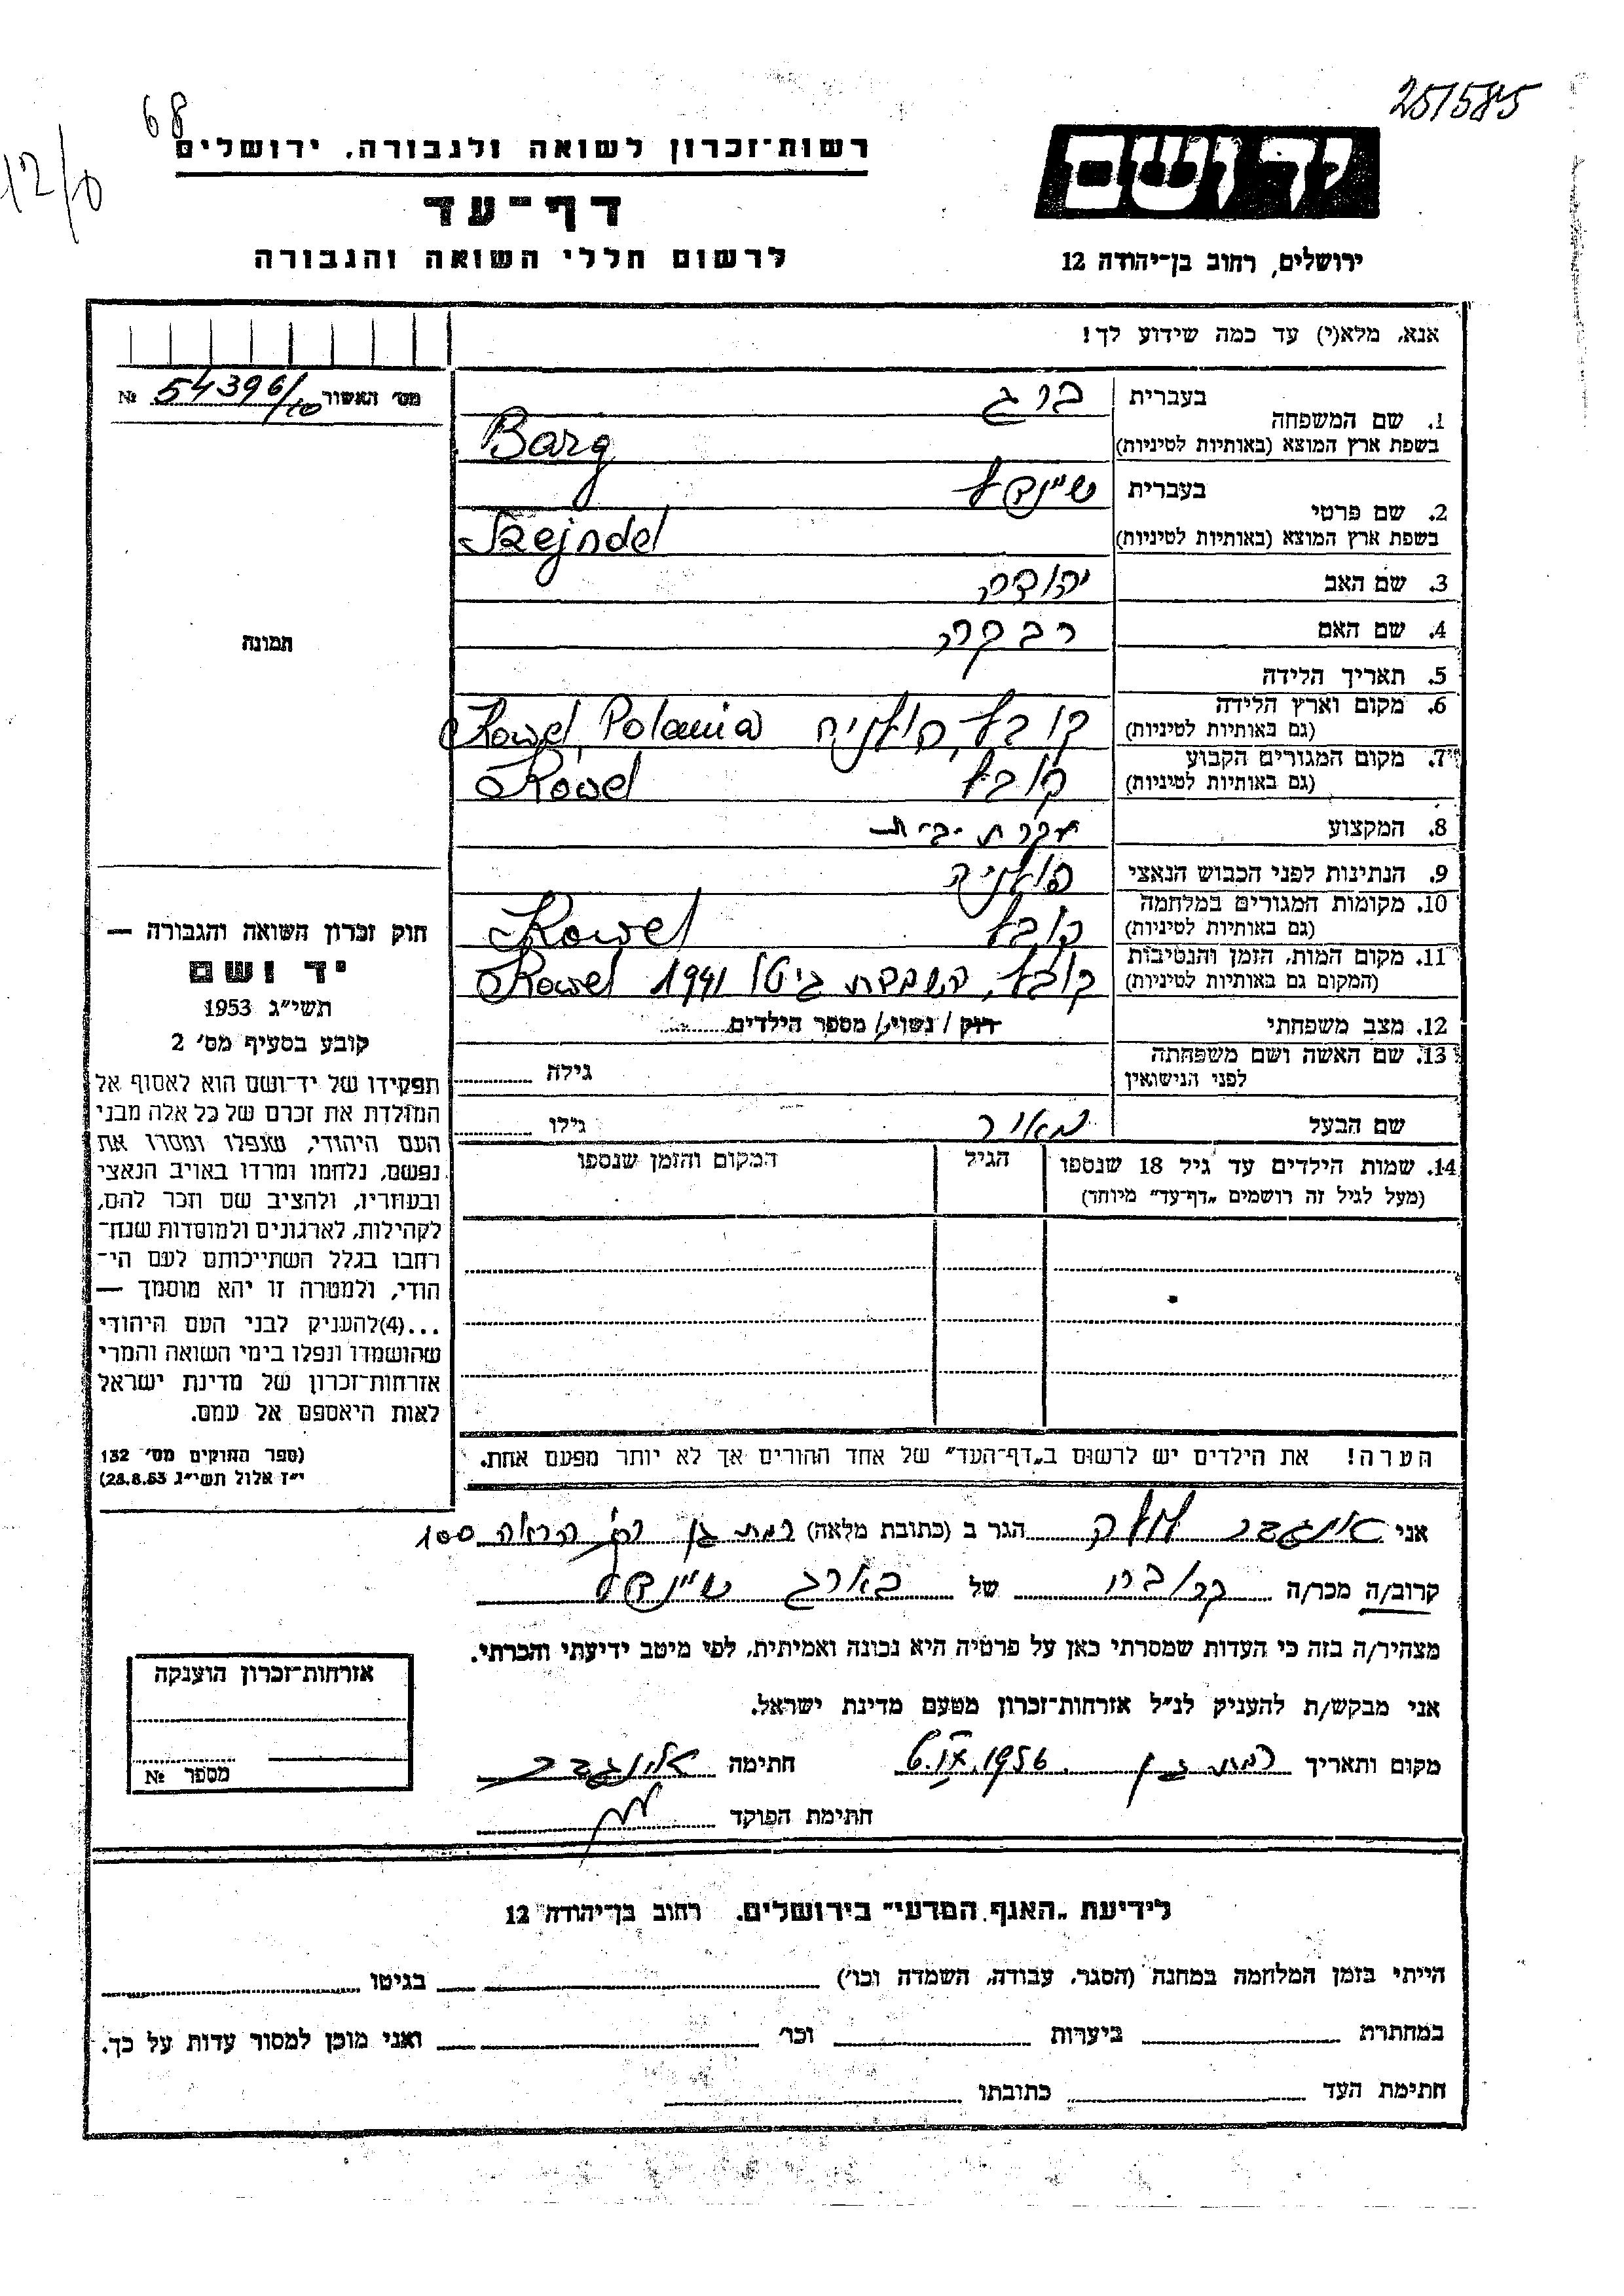 251585
68
12/0
יד ושם
רשות־זכרון לשואה ולגבורה, ירושלים
דף־עד
לרשום חללי השואה והגבורה
ירושלים, רחוב בן־יהודה 12
אנא, מלא(י) עד כמה שידוע לך!
מס׳ האשור 54396/10 №
תמונה
בעברית ברג
1. שם המשפחה
בשפת ארץ המוצא (באותיות לטיניות) Barg
בעברית שיינדל
2. שם פרטי
בשפת ארץ המוצא (באותיות לטיניות) Szejndel
3. שם האב יהודה
4. שם האם רבקה
5. תאריך הלידה
6. מקום וארץ הלידה קובל, פולניה Kowel, Polania
(גם באותיות לטיניות)
7. מקום המגורים הקבוע קובל Kowel
(גם באותיות לטיניות)
8. המקצוע עקרת בית
9. הנתינות לפני הכבוש הנאצי פולניה
10. מקומות המגורים במלחמה קובל Kowel
(גם באותיות לטיניות)
11. מקום המות, הזמן והנסיבות קובל, השמדת גיטו 1941 Kowel
(המקום גם באותיות לטיניות)
12. מצב משפחתי רוק / נשוי / מספר הילדים
13. שם האשה ושם משפחתה גילה
לפני הנישואין
שם הבעל מאיר גילו
14. שמות הילדים עד גיל 18 שנספו הגיל המקום והזמן שנספו
(מעל לגיל זה רושמים „דף־עד” מיוחד)
הערה! את הילדים יש לרשום ב„דף־העד” של אחד ההורים אך לא יותר מפעם אחת.
חוק זכרון השואה והגבורה —
יד ושם
תשי״ג 1953
קובע בסעיף מס׳ 2
תפקידו של יד־ושם הוא לאסוף אל
המולדת את זכרם של כל אלה מבני
העם היהודי, שנפלו ומסרו את
נפשם, נלחמו ומרדו באויב הנאצי
ובעוזריו, ולהציב שם וזכר להם,
לקהילות, לארגונים ולמוסדות שנח־
רבו בגלל השתייכותם לעם הי־
הודי, ולמטרה זו יהא מוסמך —
...(4) להעניק לבני העם היהודי
שהושמדו ונפלו בימי השואה והמרי
אזרחות־זכרון של מדינת ישראל
לאות היאספם אל עמם.
(ספר החוקים מס׳ 132
י״ז אלול תשי״ג 28.8.53)
אני הגר ב (כתובת מלאה) רמת גן הראה 100
קרוב/ה מכר/ה קרובה של בארג שיינדל
מצהיר/ה בזה כי העדות שמסרתי כאן על פרטיה היא נכונה ואמיתית, לפי מיטב ידיעתי והכרתי.
אני מבקש/ת להעניק לנ״ל אזרחות־זכרון מטעם מדינת ישראל.
מקום ותאריך רמת גן 1956 חתימה
חתימת הפוקד
אזרחות־זכרון הוענקה
מספר №
לידיעת „האגף המדעי” בירושלים, רחוב בן־יהודה 12
הייתי בזמן המלחמה במחנה (הסגר, עבודה, השמדה וכו׳) בגיטו
במחתרת ביערות וכו׳ ואני מוכן למסור עדות על כך.
חתימת העד כתובתו